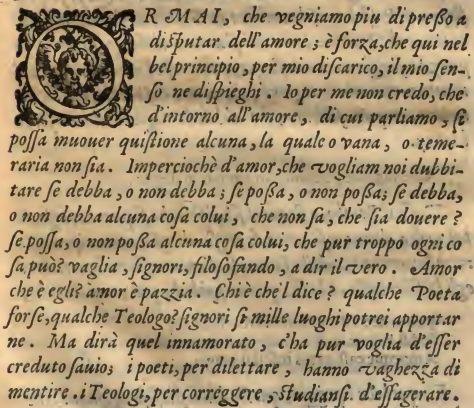 ORMAI, che vegniamo piu di preſſo a
diſputar dell'amore; è forza, che qui nel
bel principio, per mio diſcarico, il mio ſen-
ſo ne diſpieghi. Io per me non credo, che
d'intorno all'amore, di cui parliamo, ſi
poſſa muouer quiſtione alcuna, la quale o vana, o teme-
raria non ſia. Imperciochè d'amor, che vogliam noi dubbi-
tare ſe debba, o non debba; ſe poßa, o non poßa; ſe debba,
o non debba alcuna coſa colui, che non ſà, che ſia douere?
ſe poſſa, ò non poßa alcuna coſa colui, che pur troppo ogni co
ſa può? vaglia, ſignori, filoſofando, a dir il vero. Amor
che è egli? amor è pazzia. Chi è che'l dice? qualche Poeta
forſe, qualche Teologo? ſignori ſi mille luoghi potrei apportar
ne. Ma dirà quel innamorato, c'ha pur voglia d'eſſer
creduto ſauio; i poeti, per dilettare, hanno vaghezza di
mentire. i Teologi, per correggere, ſtudianſi d'eſſagerare.